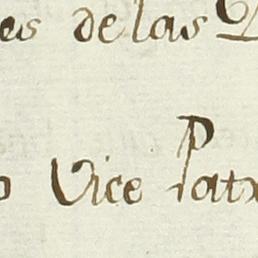 es de las
Vice Pat